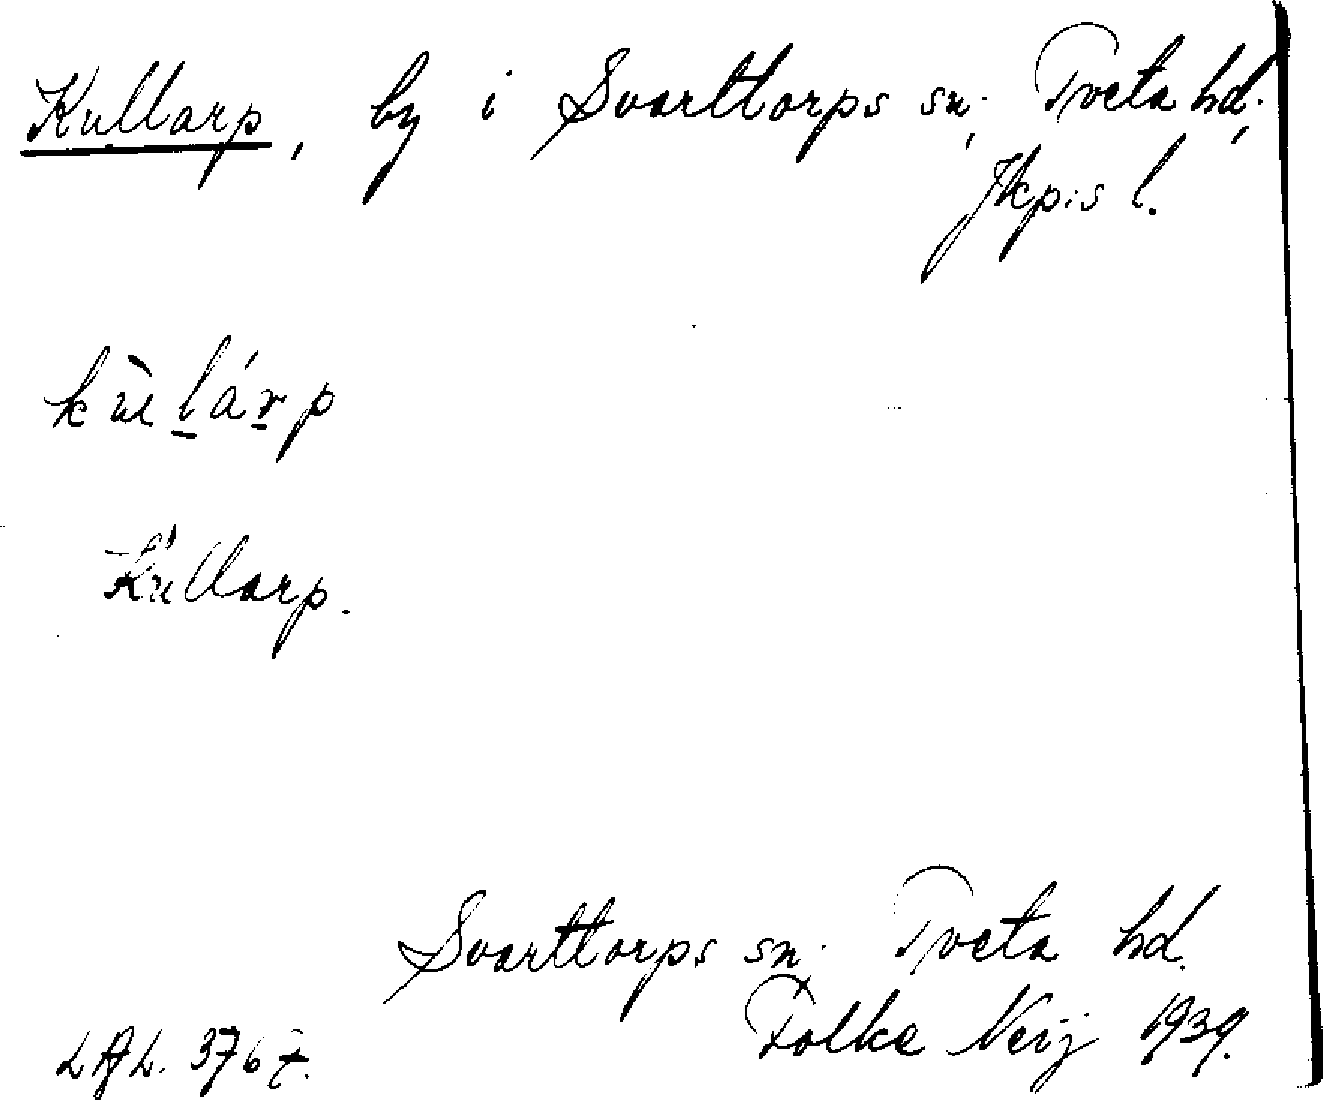 Kullarp, by i Svarttorps sn, Tveta hd,
Jkp:s l.
kùlárp
Kullarp.
Svarttorps sn. Tveta hd.
Folke Neij 1939.
LAL. 3767.